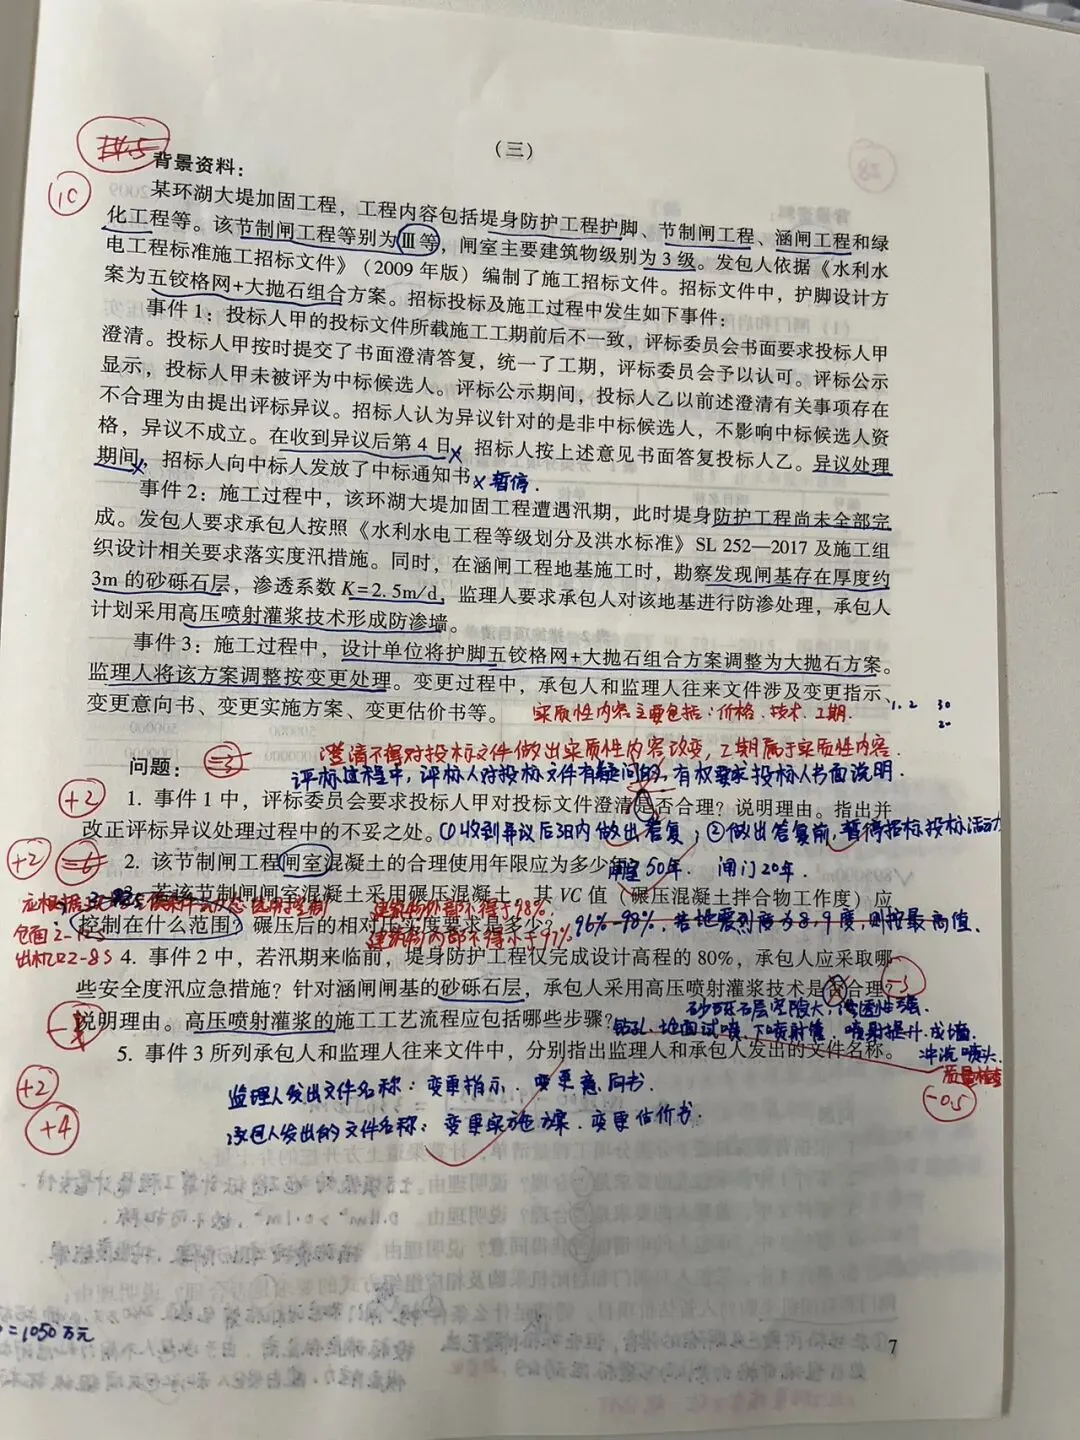 （三）
背景资料：
10
28
某环湖大堤加固工程，工程内容包括堤身防护工程护脚、节制闸工程、涵闸工程和绿
化工程等。该节制闸工程等别为Ⅲ等，闸室主要建筑物级别为3级。发包人依据《水利水
电工程标准施工招标文件》（2009年版）编制了施工招标文件。招标文件中，护脚设计方
案为五铰格网+大抛石组合方案。招标投标及施工过程中发生如下事件：
事件1：投标人甲的投标文件所载施工工期前后不一致，评标委员会书面要求投标人甲
澄清。投标人甲按时提交了书面澄清答复，统一了工期，评标委员会予以认可。评标公示
显示，投标人甲未被评为中标候选人。评标公示期间，投标人乙以前述澄清有关事项存在
不合理为由提出评标异议。招标人认为异议针对的是非中标候选人，不影响中标候选人资
格，异议不成立。在收到异议后第4日，招标人按上述意见书面答复投标人乙。异议处理
期间，招标人向中标人发放了中标通知书。
x 暂停.
事件2：施工过程中，该环湖大堤加固工程遭遇汛期，此时堤身防护工程尚未全部完
成。发包人要求承包人按照《水利水电工程等级划分及洪水标准》SL 252—2017及施工组
织设计相关要求落实度汛措施。同时，在涵闸工程地基施工时，勘察发现闸基存在厚度约
3m的砂砾石层，渗透系数K=2.5m/d，监理人要求承包人对该地基进行防渗处理，承包人
计划采用高压喷射灌浆技术形成防渗墙。
事件3：施工过程中，设计单位将护脚五铰格网+大抛石组合方案调整为大抛石方案。
监理人将该方案调整按变更处理。变更过程中，承包人和监理人往来文件涉及变更指示、
变更意向书、变更实施方案、变更估价书等。
实质性内容主要包括：价格、技术、工期.
1. 2 30
20
澄清不得对投标文件做出实质性内容改变，工期属于实质性内容.
问题：
评标过程中，评标人对投标文件有疑问的，有权要求投标人书面说明.
+2
1. 事件1中，评标委员会要求投标人甲对投标文件澄清是否合理？说明理由。指出并
改正评标异议处理过程中的不妥之处。
①收到异议后3日内做出答复；②做出答复前，暂停招标投标活动
+2
2. 该节制闸工程闸室混凝土的合理使用年限应为多少年？
闸室50年. 闸门20年.
3. 若该节制闸闸室混凝土采用碾压混凝土，其VC值（碾压混凝土拌合物工作度）应
控制在什么范围？碾压后的相对压实度要求是多少？
建筑物外部不得小于98%.
建筑物内部不得小于97%.
96%-98%，若地震烈度为8.9度，则按最高值.
仓面2-12S
出机口2-8S
4. 事件2中，若汛期来临前，堤身防护工程仅完成设计高程的80%，承包人应采取哪
些安全度汛应急措施？针对涵闸闸基的砂砾石层，承包人采用高压喷射灌浆技术是否合理？
-3
砂砾石层空隙大，渗透性强.
说明理由。高压喷射灌浆的施工工艺流程应包括哪些步骤？
钻孔、地面试喷、下喷射管、喷射提升、成墙
冲洗喷头.
质量检查
-0.5
5. 事件3所列承包人和监理人往来文件中，分别指出监理人和承包人发出的文件名称。
+2
监理人发出文件名称：变更指示、变更意向书.
+4
承包人发出的文件名称：变更实施方案、变更估价书.
=1050万元
7